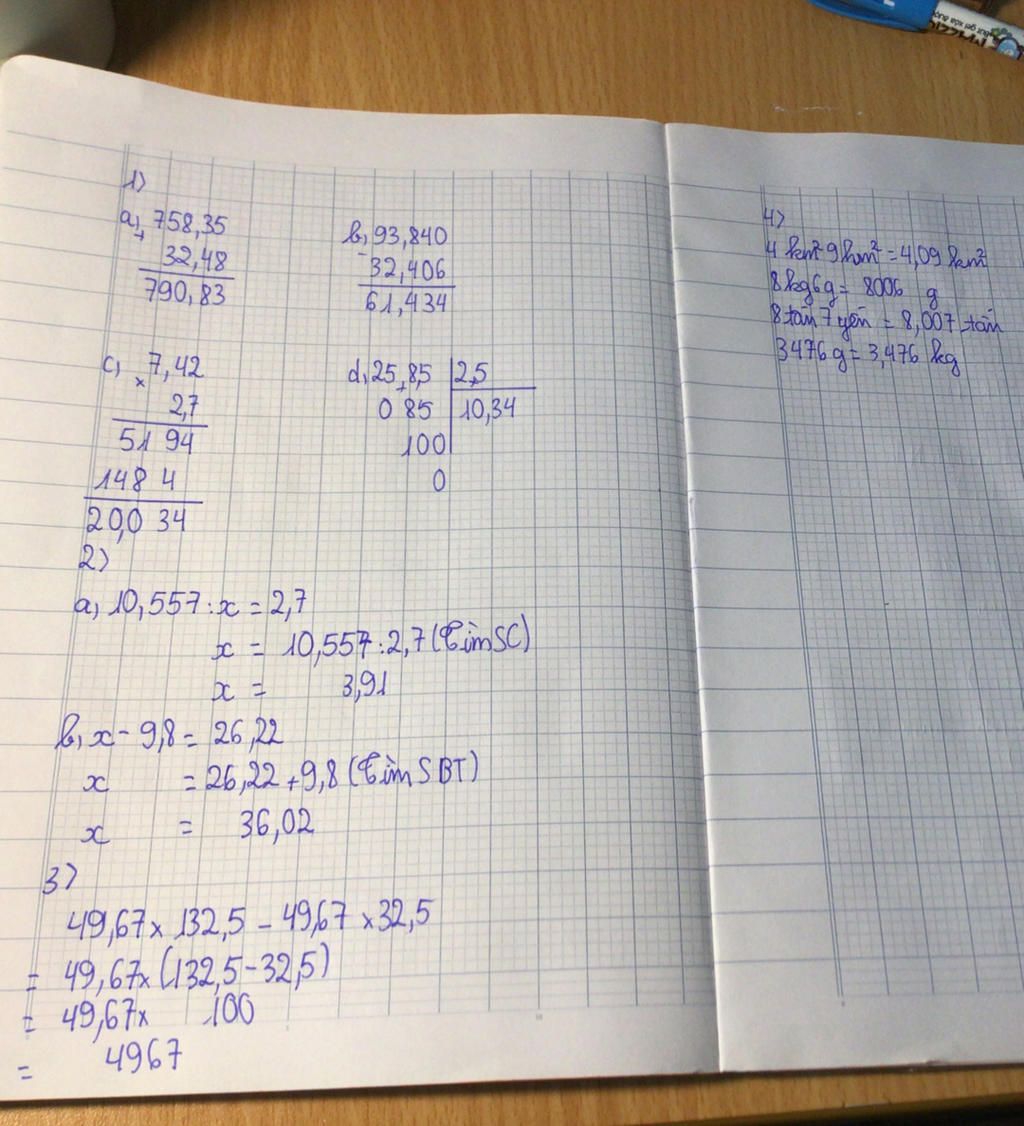 1)
a, 758,35
+
32,48
790,83
b, 93,840
-
32,406
61,434
c, 7,42
×
2,7
51 94
148 4
20,0 34
d, 25,8,5 | 2,5
0 85 | 10,34
100
0
2)
a, 10,557 : x = 2,7
x = 10,557 : 2,7 (Tìm SC)
x = 3,91
b, x - 9,8 = 26,22
x = 26,22 + 9,8 (Tìm SBT)
x = 36,02
3)
49,67 × 132,5 - 49,67 × 32,5
= 49,67 × (132,5 - 32,5)
= 49,67 × 100
= 4967
4)
4 km² 9 hm² = 4,09 km²
8 kg 6g = 8006 g
8 tấn 7 yến = 8,007 tấn
3476 g = 3,476 kg